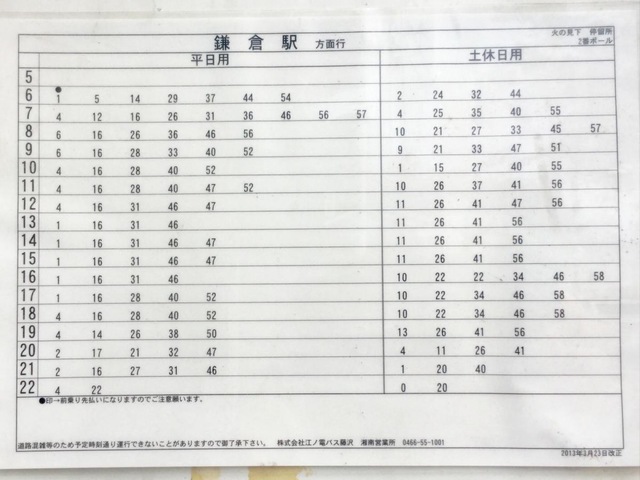 火の見下 停留所
鎌倉駅 方面行 2番ポール
平日用 土休日用
5
6 ●1 5 14 29 37 44 54 2 24 32 44
7 4 12 16 26 31 36 46 56 57 4 25 35 40 55
8 6 16 26 36 46 56 10 21 27 33 45 57
9 6 16 28 33 40 52 9 21 33 47 51
10 4 16 28 40 52 1 15 27 40 55
11 4 16 28 40 47 52 10 26 37 41 56
12 4 16 31 46 47 11 26 41 47 56
13 1 16 31 46 11 26 41 56
14 1 16 31 46 47 11 26 41 56
15 1 16 31 46 47 11 26 41 56
16 1 16 31 46 10 22 22 34 46 58
17 1 16 28 40 52 10 22 34 46 58
18 4 16 28 40 52 10 22 34 46 58
19 4 14 26 38 50 13 26 41 56
20 2 17 21 32 47 4 11 26 41
21 2 16 27 31 46 1 20 40
22 4 22 0 20
●印→前乗り先払いになりますのでご注意願います。
道路混雑等のため予定時刻通り運行できないことがありますので御了承下さい。 株式会社江ノ電バス藤沢 湘南営業所 0466-55-1001
2013年3月23日改正